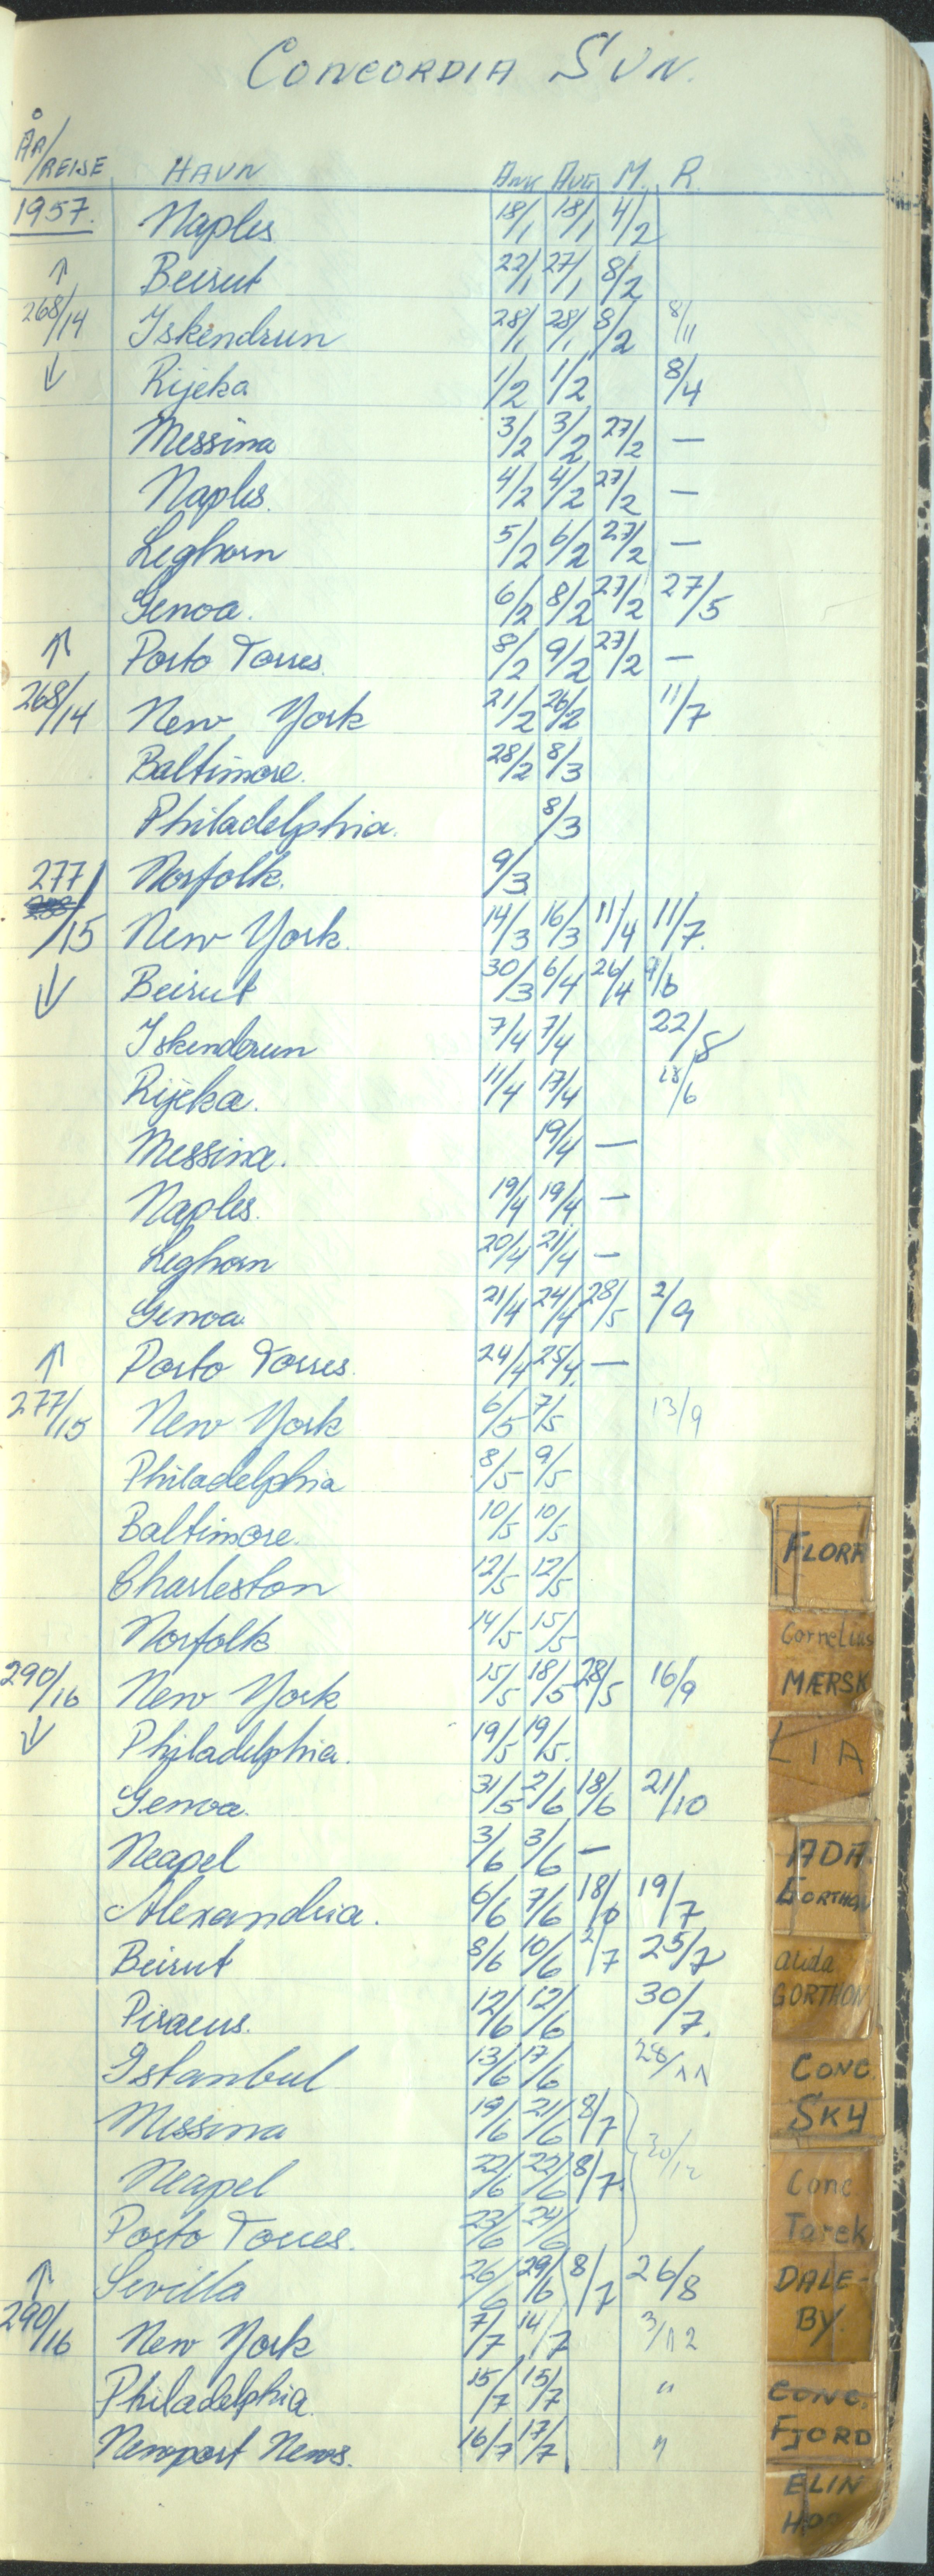 CONCORDIA SUN.
ÅR/REISE HAVN ANK AVG. M. R.
1957. Naples 18/1 18/1 4/2
↑ Beirut 22/1 27/1 8/2
268/14 Iskendrun 28/1 28/1 8/2 8/11
↓ Rijeka 1/2 1/2 8/4
Messina 3/2 3/2 27/2 —
Naples. 4/2 4/2 27/2 —
Leghorn 5/2 6/2 27/2 —
Genoa. 6/2 8/2 27/2 27/5
↑ Porto Torres. 8/2 9/2 27/2 —
268/14 New York 21/2 26/2 11/7
Baltimore. 28/2 8/3
Philadelphia. 8/3
277/15 Norfolk. 9/3
New York. 14/3 16/3 11/4 11/7.
↓ Beirut 30/3 6/4 26/4
Iskenderun 7/4 7/4 22/8
Rijeka. 11/4 17/4 18/6
Messina. 19/4 —
Naples. 19/4 19/4 —
Leghorn 20/4 21/4 —
Genoa. 21/4 24/4 28/5 2/9
↑ Porto Torres. 24/4 25/4. —
277/15 New York 6/5 7/5 13/9
Philadelphia 8/5 9/5
Baltimore. 10/5 10/5
Charleston 12/5 12/5
Norfolk 14/5 15/5
290/16 New York 15/5 18/5 28/5 16/9
↓ Philadelphia. 19/5 19/5.
Genoa. 31/5 2/6 18/6 21/10
Neapel 3/6 3/6 —
Alexandria. 6/6 7/6 18/6 19/7
Beirut 8/6 10/6 2/7 25/7
Piraeus. 12/6 12/6 30/7.
Istanbul 13/6 17/6 28/11
Messina 19/6 21/6 8/7
Neapel 22/6 22/6 8/7. 20/12
Porto Torres. 23/6 24/6
↑ Sevilla 26/6 29/6 8/7 26/8
290/16 New York 7/7 14/7 3/12
Philadelphia. 15/7 15/7 "
Newport News. 16/7 17/7 "
FLORA
Cornelius
MÆRSK
LIA
ADA
GORTHON
Alida
GORTHON
CONC.
SKY
Conc.
Tarek
DALE-
BY.
CONC.
FJORD
ELIN